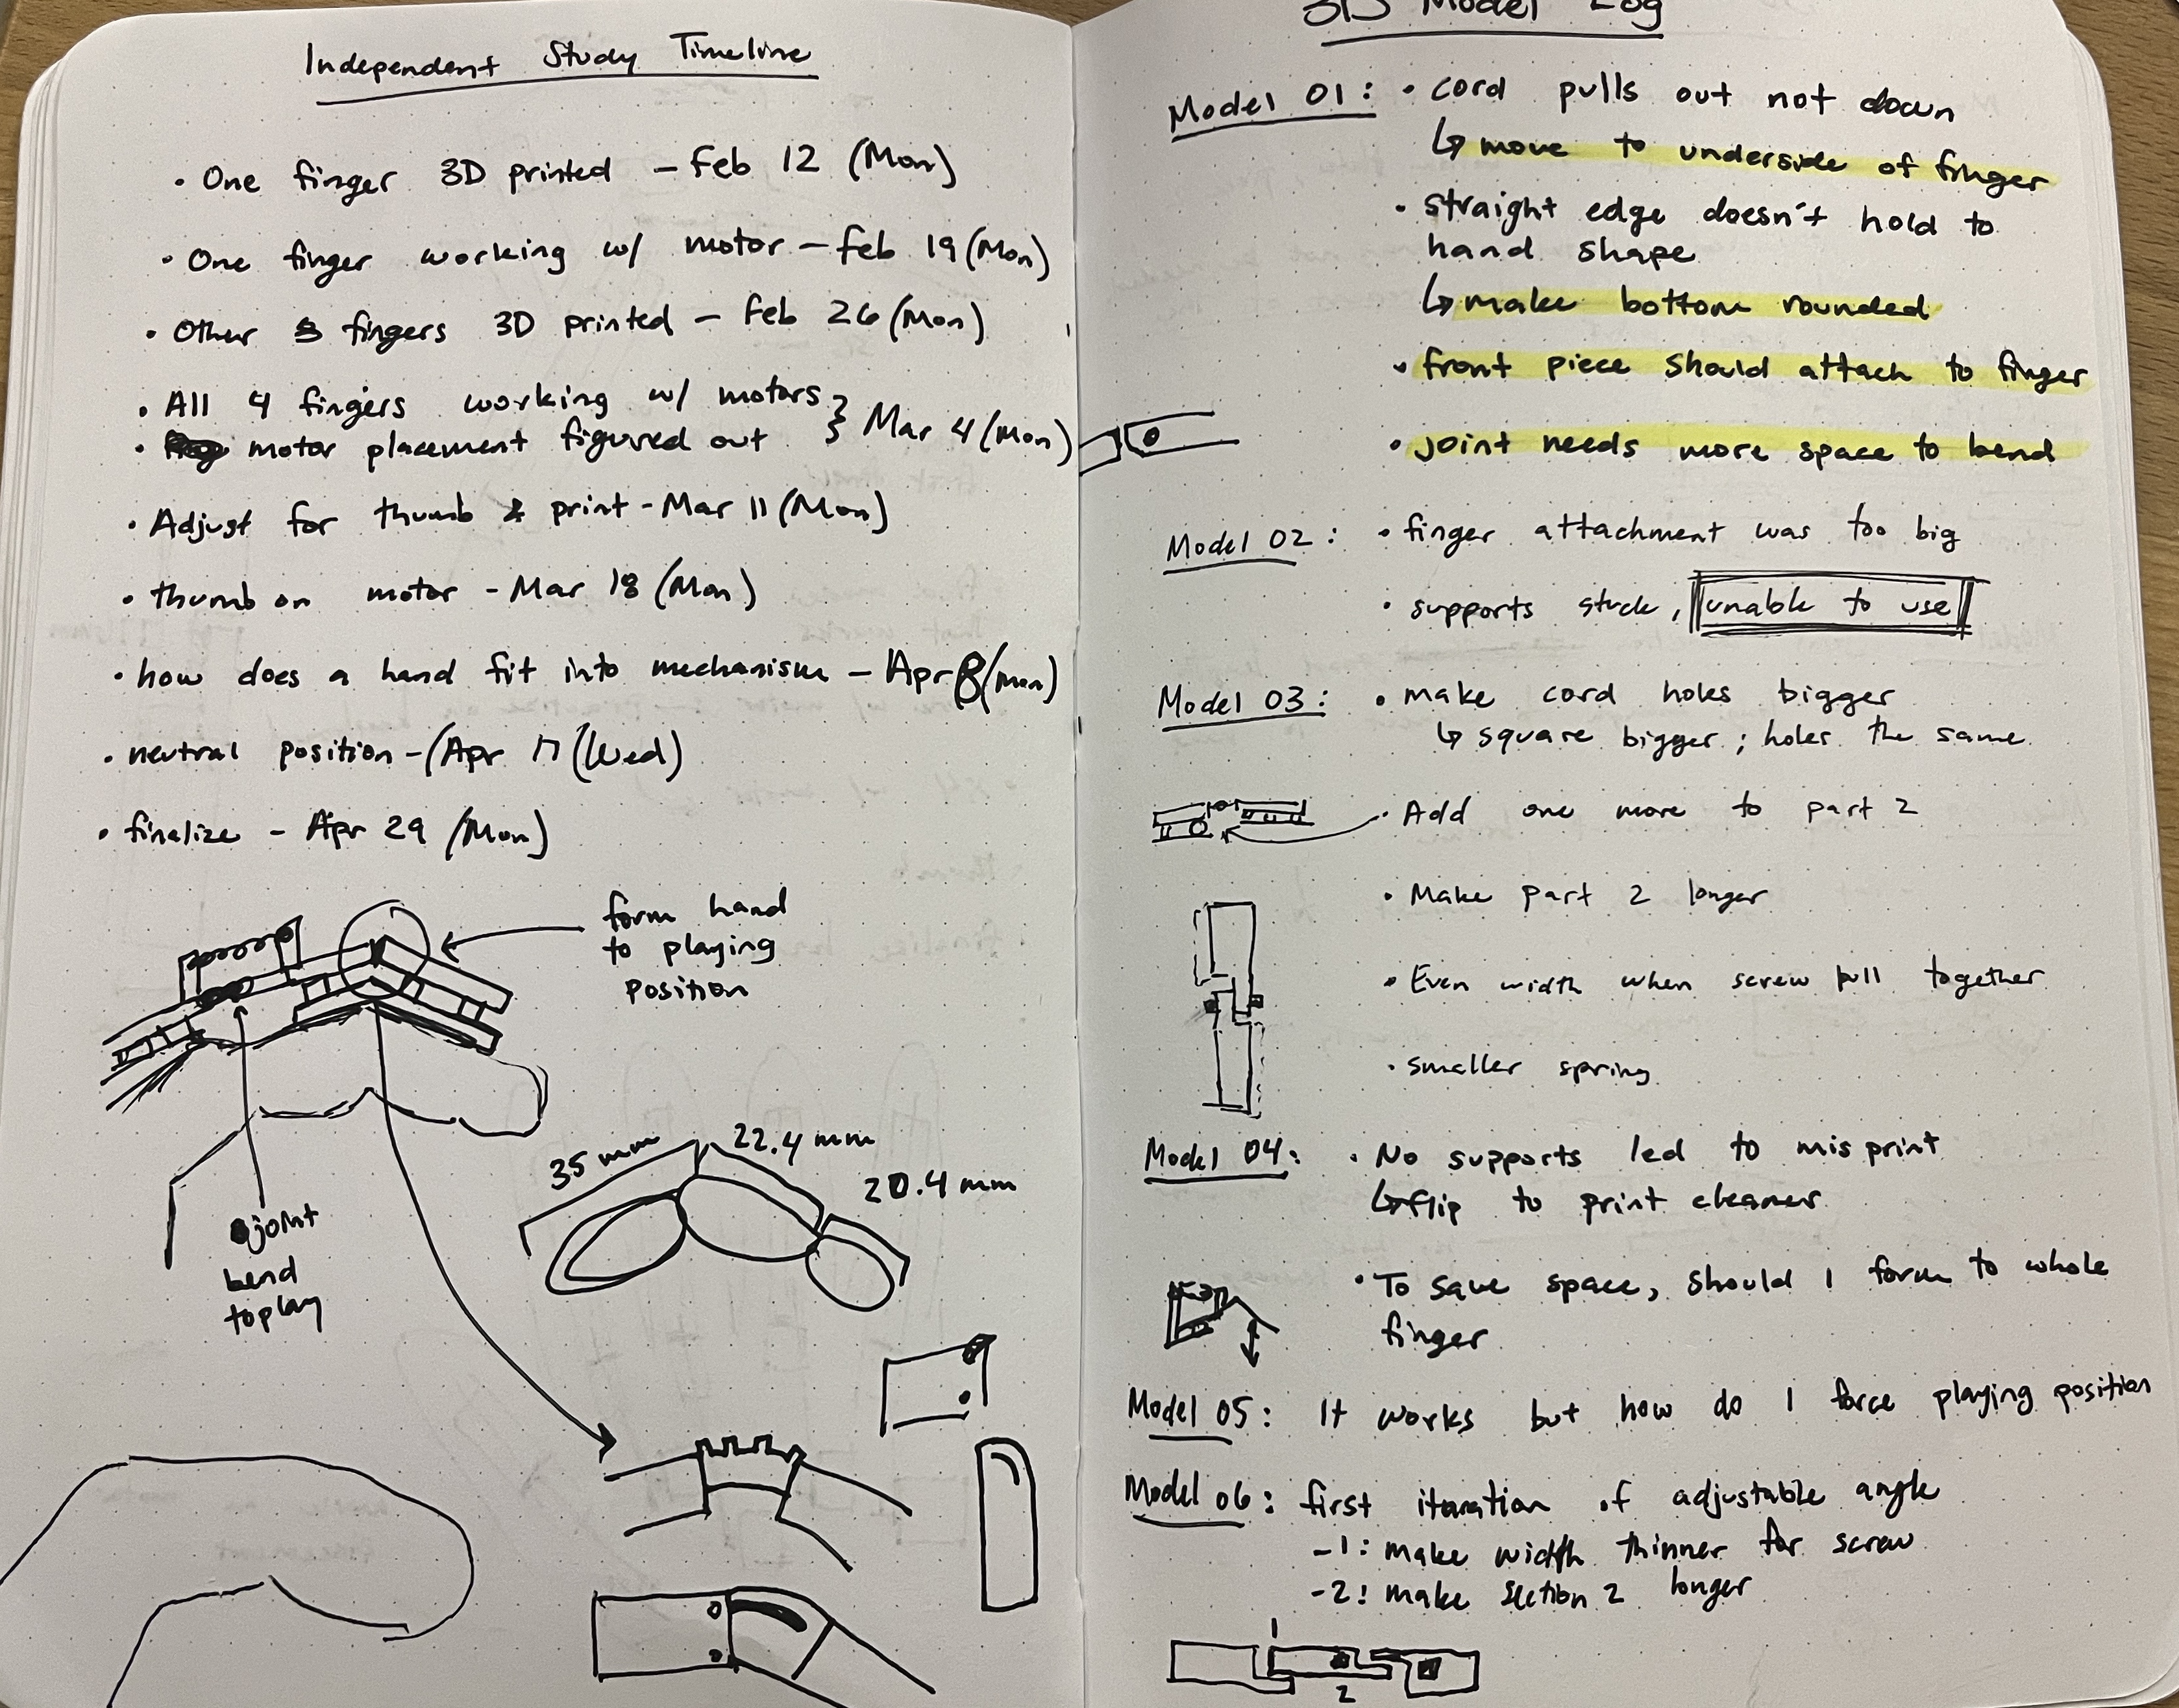 Independent Study Timeline
• One finger 3D printed – Feb 12 (Mon)
• One finger working w/ motor – Feb 19 (Mon)
• Other 3 fingers 3D printed – Feb 26 (Mon)
• All 4 fingers working w/ motors
• motor placement figured out } Mar 4 (Mon)
• Adjust for thumb & print - Mar 11 (Mon)
• thumb on motor - Mar 18 (Mon)
• how does a hand fit into mechanism – Apr 8 (Mon)
• neutral position - (Apr 17 (Wed)
• finalize - Apr 29 (Mon)
form hand
to playing
position
35 mm
22.4 mm
20.4 mm
joint
bend
to play
3D Model Log
Model 01: • cord pulls out not down
↳ move to underside of finger
• straight edge doesn't hold to
hand shape
↳ make bottom rounded
• front piece should attach to finger
• joint needs more space to bend
Model 02: • finger attachment was too big
• supports stuck, unable to use
Model 03: • make cord holes bigger
↳ square bigger; holes the same
• Add one more to part 2
• Make part 2 longer
• Even width when screw pull together
• smaller spring
Model 04: • No supports led to misprint
↳ flip to print cleaner
• To save space, should I form to whole
finger
Model 05: It works but how do I force playing position
Model 06: first iteration of adjustable angle
-1: make width thinner for screw
-2: make section 2 longer
1
2